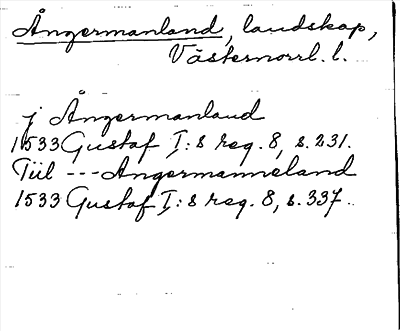 Ångermanland, landskap,
Västernorrl. l.
j Ångermanland
1533 Gustaf I:s reg. 8, s. 231.
Tiil --- Angermanneland
1533 Gustaf I:s reg. 8, s. 337.